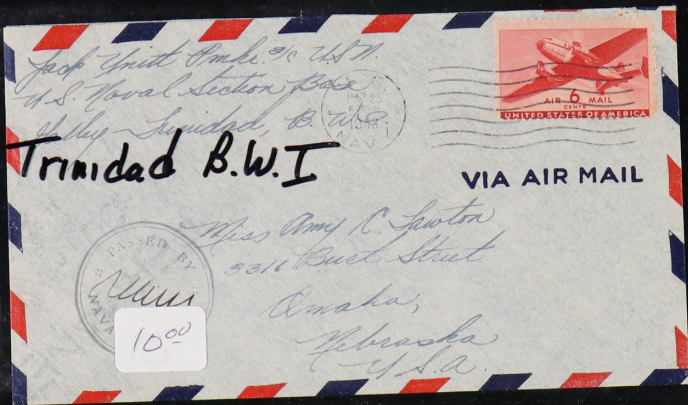 Jack Unitt Pmkr. 3/c USN.
U.S. Naval Section Base
Trinidad, B.W.I.
Trinidad B.W.I
NAVY
AIR 6 MAIL
CENTS
UNITED STATES OF AMERICA
VIA AIR MAIL
PASSED BY
NAVA
Miss Amy C. Lawton
3316 Burt Street
Omaha,
Nebraska
U.S.A.
10.00